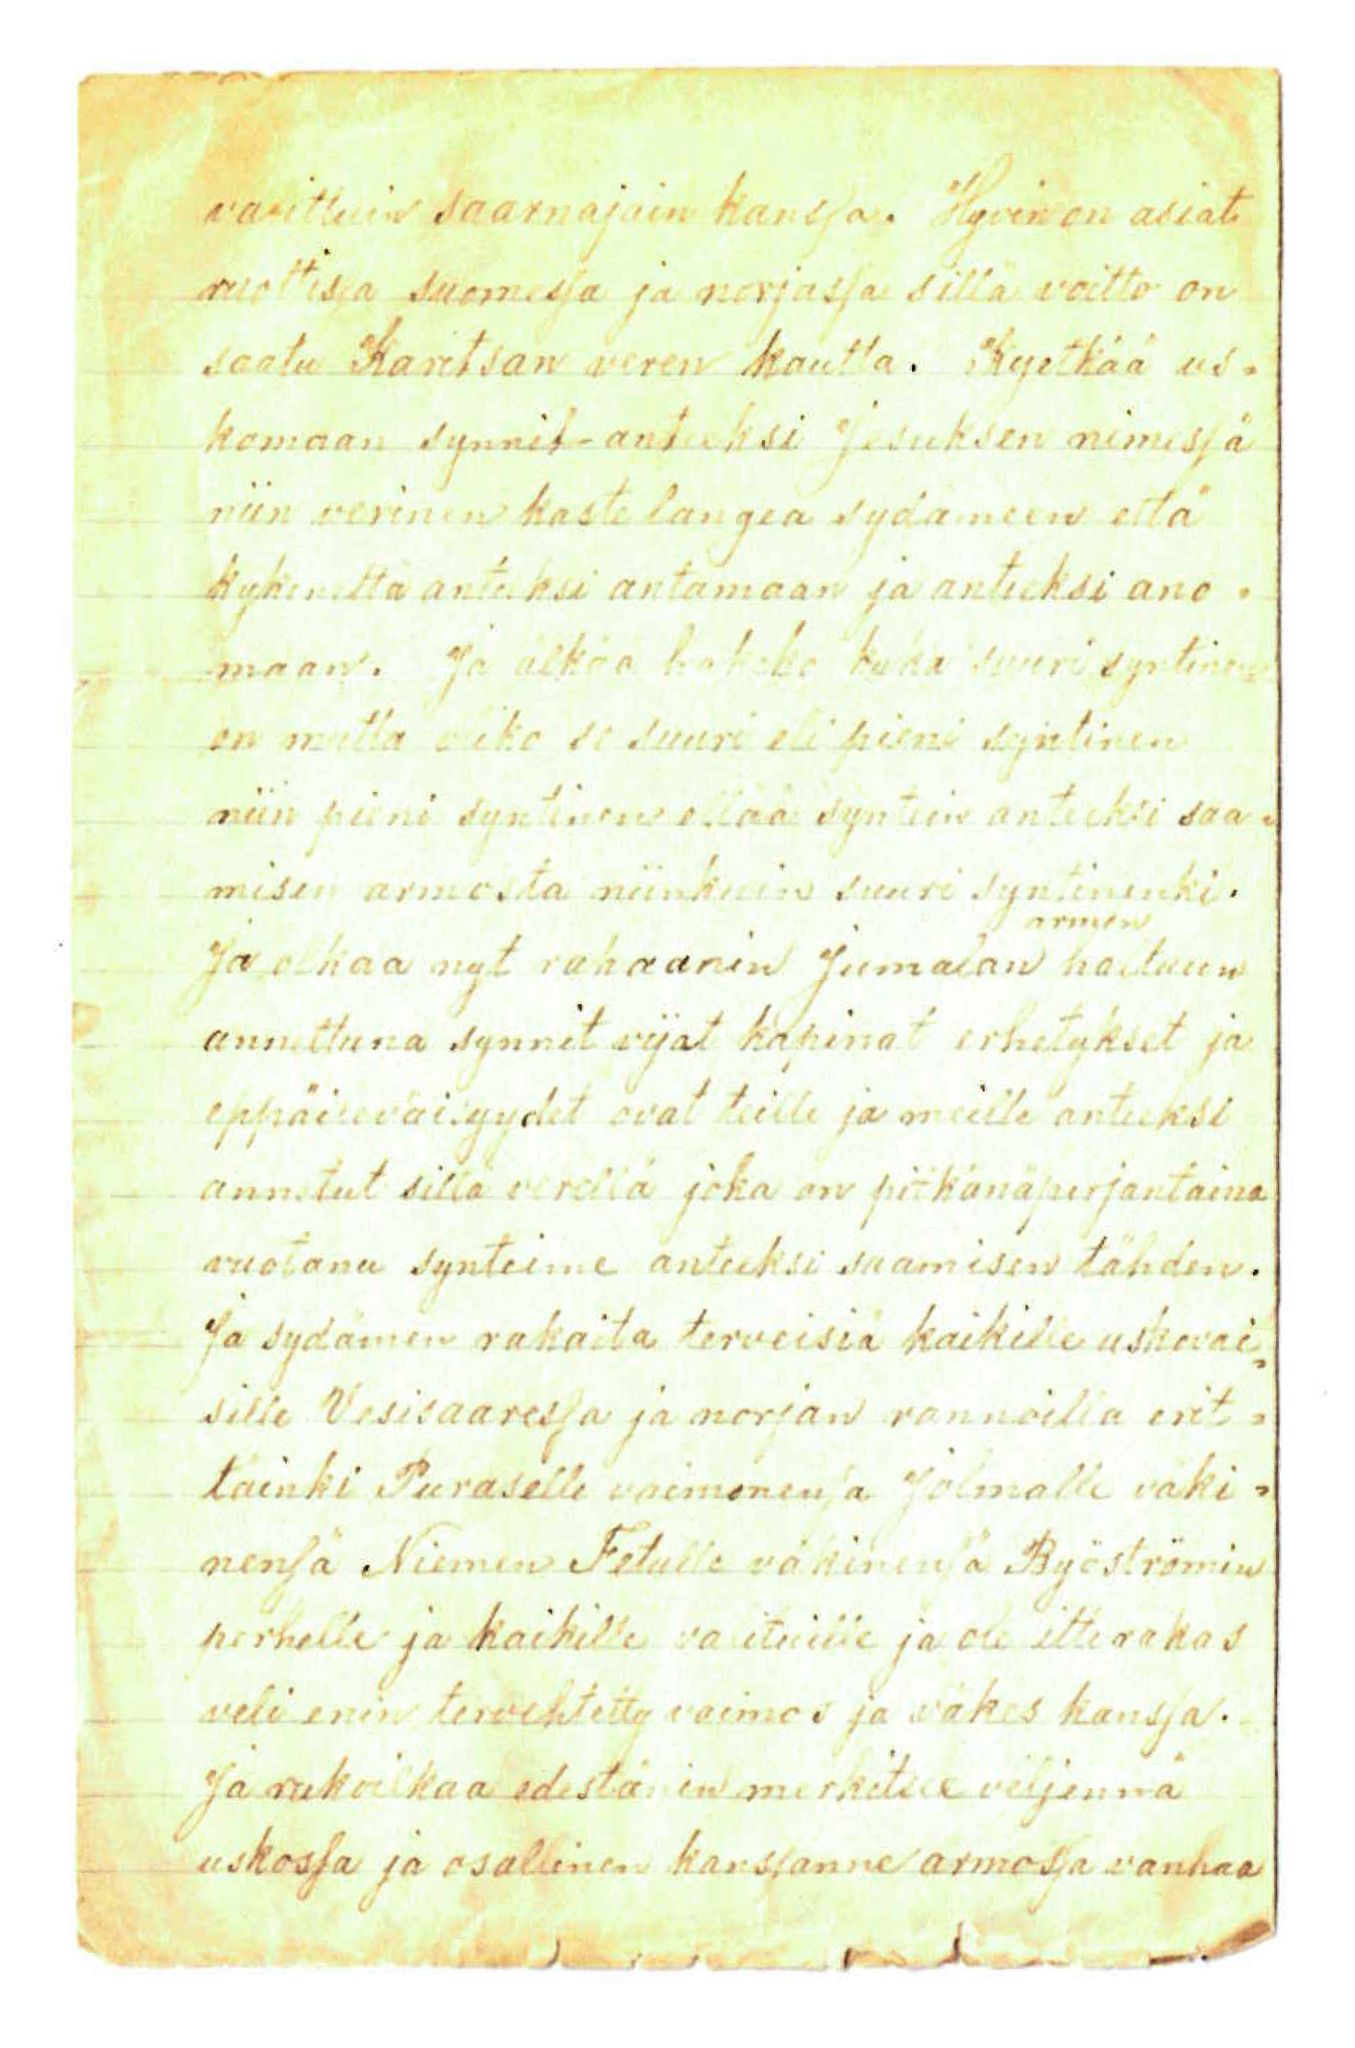 valittuin saarnajain kanssa. Hyvin on asiat
ruottissa suomessa ja norjassa sillä voitto on
saatu Karitsan veren kautta. Kyetkää us-
komaan synnit-anteeksi Jesuksen nimessä
niin verinen kaste langea sydämeen että
kykenettä anteeksi antamaan ja anteeksi ano-
maan. Ja älkää hakeko kuka suuri syntinen
on mutta oliko se suuri eli pieni syntinen
niin pieni syntinen elää syntein anteeksi saa-
misen armosta niinkuin suuri syntinenki.
armon
Ja olkaa nyt rakaanin Jumalan haltuun
annettuna synnit vijat kapinat erhetykset ja
eppäileväisyydet ovat teille ja meille anteeksi
annetut sillä verellä joka on pitkänäperjantaina
vuotanu synteime anteeksi saamisen tähden.
Ja sydämen rakaita terveisiä kaikille uskovai-
sille Vesisaaressa ja norjan rannoilla erit-
täinki Puraselle vaimonensa Jolmalle väki-
nensä Niemen Fetulle väkinensä Byöströmin
perhelle ja kaikille valituille ja ole itte rakas
veli enin tervehtetty vaimos ja väkes kanssa.
Ja rukoilkaa edestänin merkitsee veljennä
uskossa ja osallinen kanssanne armossa vanhaa